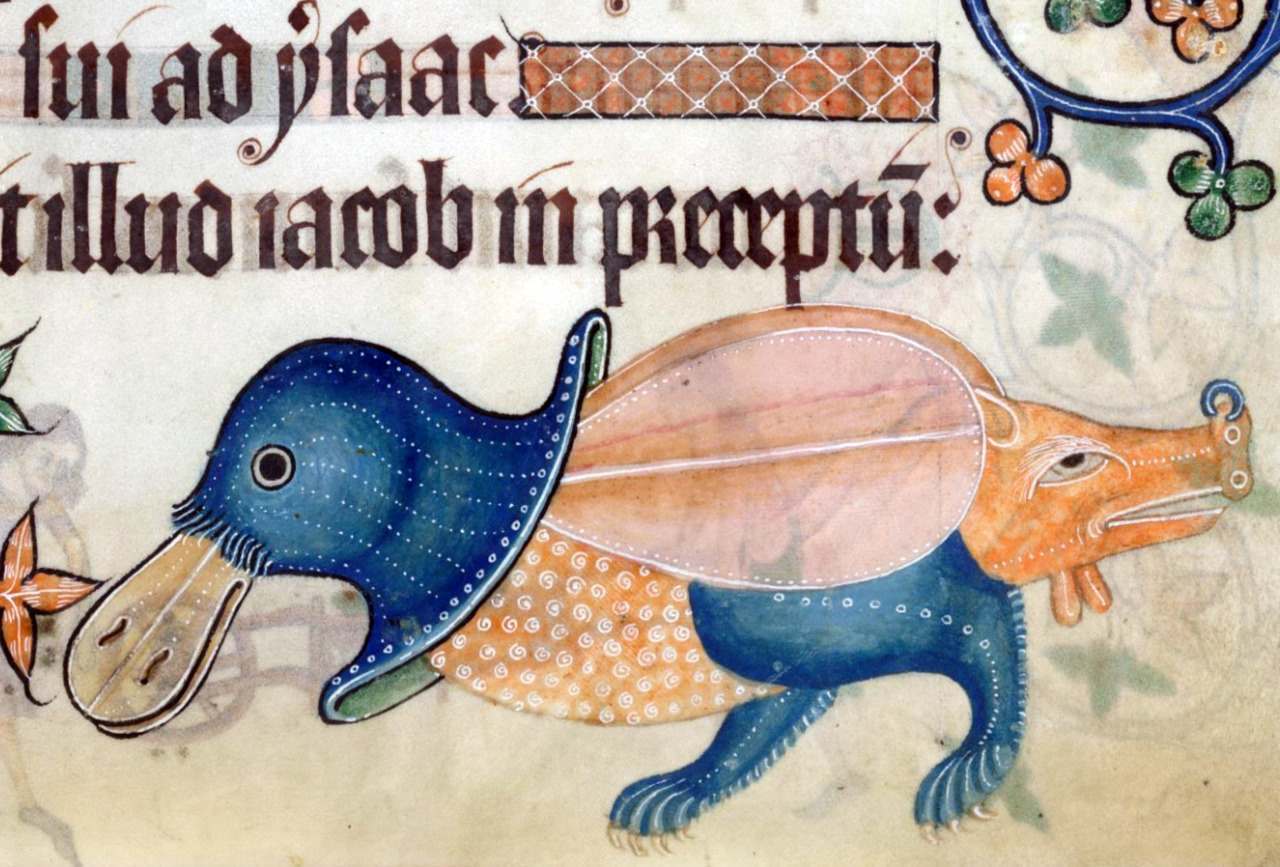 sui ad ẏsaac.
t illud iacob in preceptū: